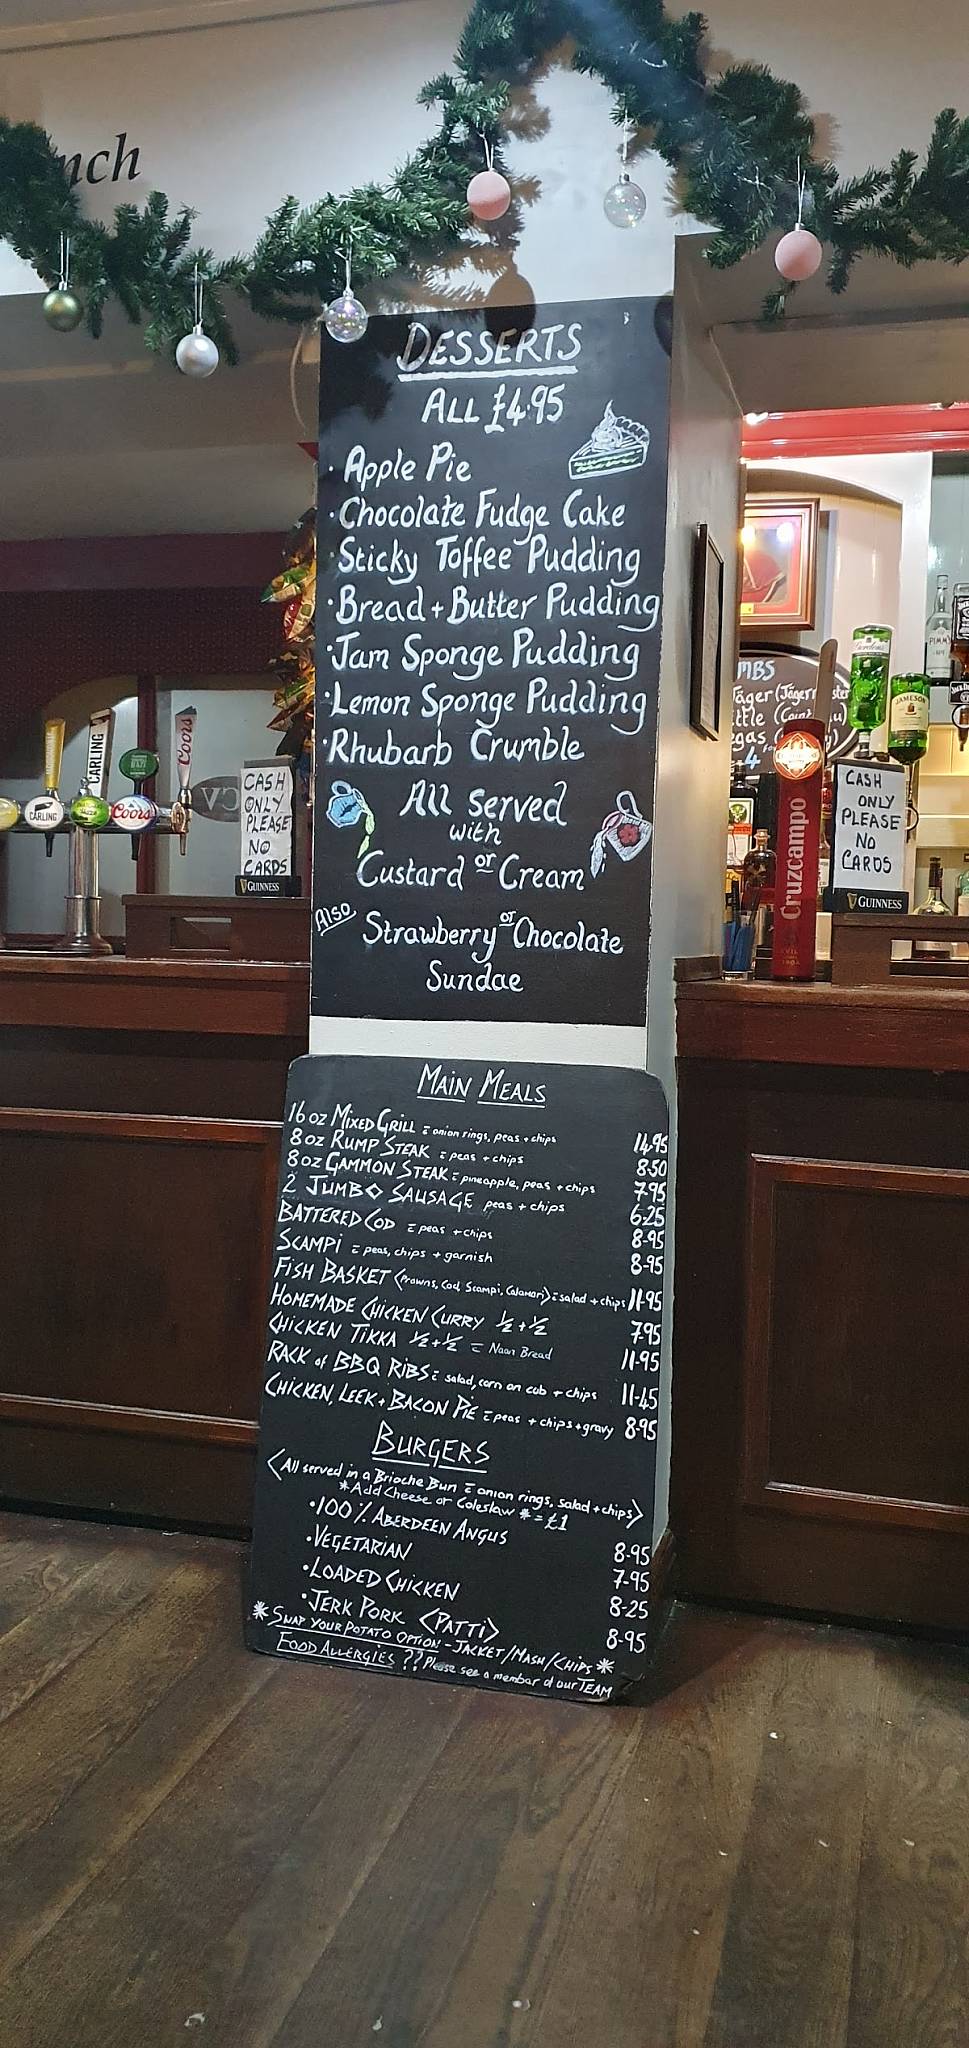 nch
DESSERTS
ALL £4.95
· Apple Pie
· Chocolate Fudge Cake
· Sticky Toffee Pudding
· Bread + Butter Pudding
· Jam Sponge Pudding
· Lemon Sponge Pudding
· Rhubarb Crumble
All served
with
Custard or Cream
Also
Strawberry or Chocolate
Sundae
MAIN MEALS
16oz MIXED GRILL = onion rings, peas + chips 14.95
8oz RUMP STEAK = peas + chips 8.50
8oz GAMMON STEAK = pineapple, peas + chips 7.95
2 JUMBO SAUSAGE peas + chips 6.25
BATTERED COD = peas + chips 8-95
SCAMPI = peas, chips + garnish 8-95
FISH BASKET <Prawns, Cod, Scampi, Calamari> = salad + chips 11-95
HOMEMADE CHICKEN CURRY ½ + ½ 7.95
CHICKEN TIKKA ½ + ½ = Naan Bread 11-95
RACK of BBQ RIBS = salad, corn on cob + chips 11-45
CHICKEN, LEEK + BACON PIE = peas + chips + gravy 8-95
BURGERS
<All served in a Brioche Bun = onion rings, salad + chips>
*Add Cheese or Coleslaw * = £1
· 100% ABERDEEN ANGUS 8-95
· VEGETARIAN 7-95
· LOADED CHICKEN 8-25
· JERK PORK <PATTI> 8-95
* SWAP YOUR POTATO OPTION - JACKET/MASH/CHIPS *
FOOD ALLERGIES ?? Please see a member of our TEAM
CASH
ONLY
PLEASE
NO
CARDS
GUINNESS
CARLING
CARLING
Coors
Coors
CASH
ONLY
PLEASE
NO
CARDS
GUINNESS
Cruzcampo
MBS
JAMESON
PIMM'S